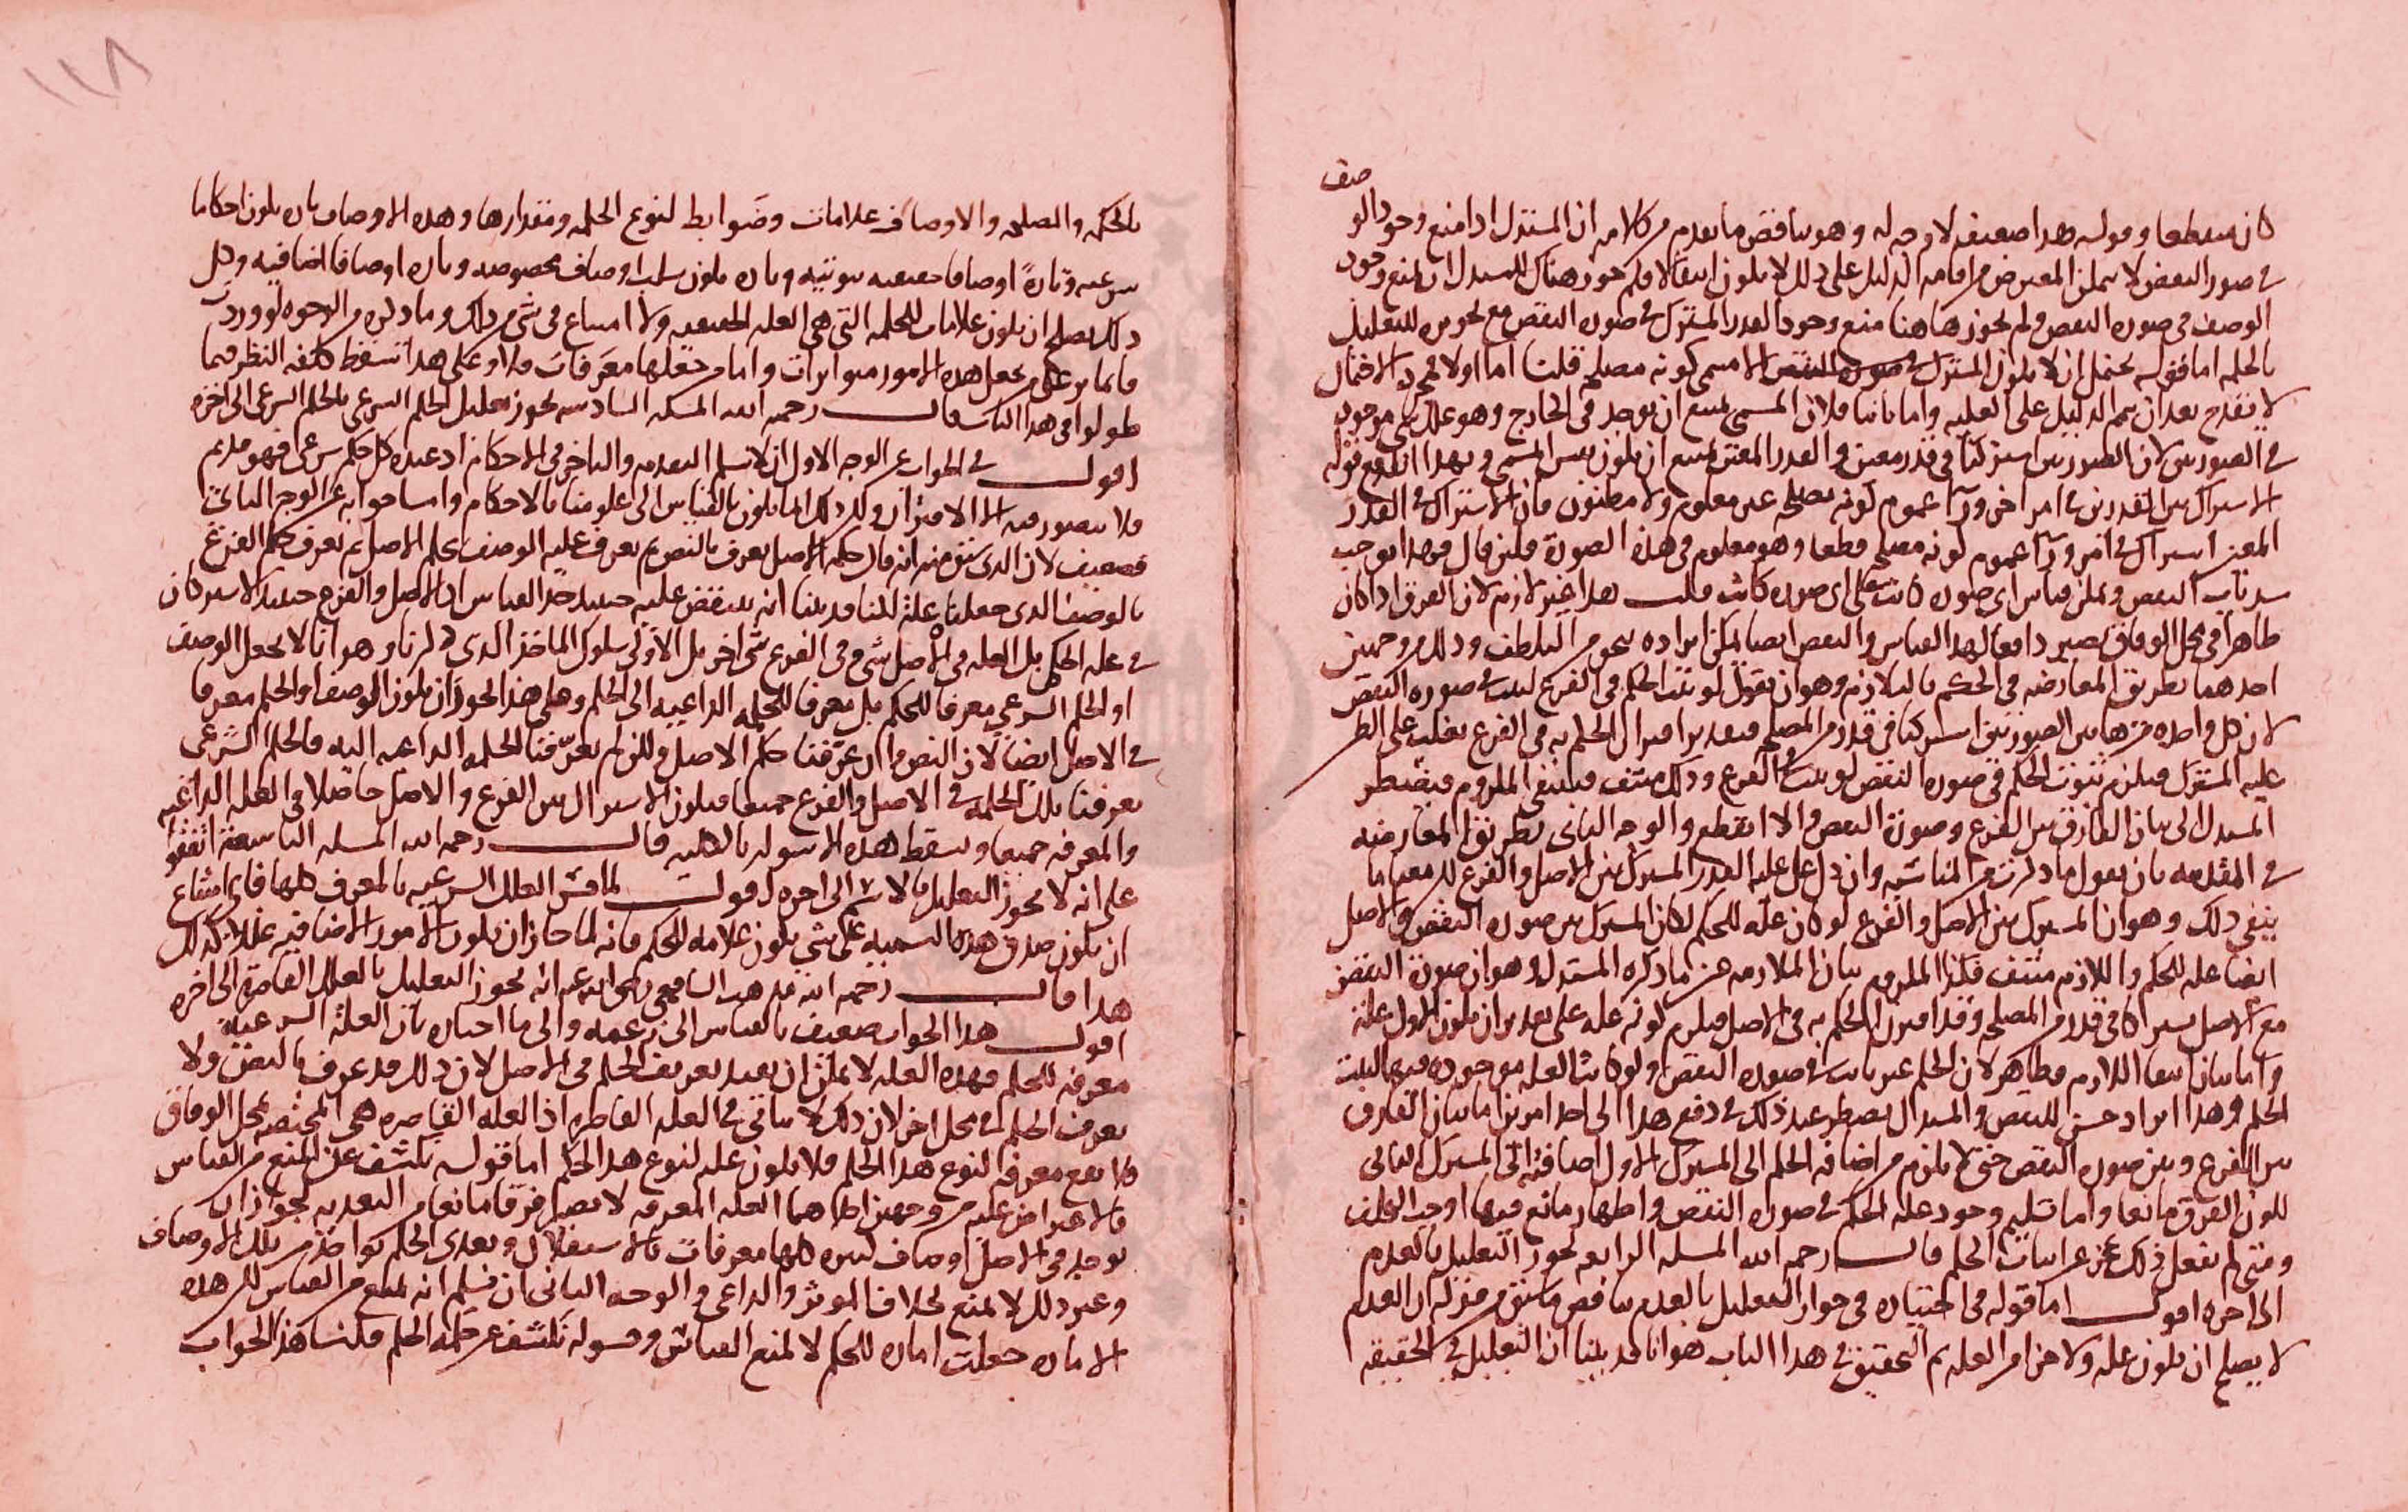 صف
كان منقطعا وقوله هذا ضعيف لا وجه له وهو يناقض ما تقدم من كلامه ان المستدل اذا منع وجود الو
في صور النقض لا يمكن المعترض من اقامة الدليل على ذلك لا يكون انتقالا فلم جوز هناك للمستدل ان يمنع وجود
الوصف في صورة النقض ولم يجوز هاهنا منع وجود القدر المشترك في صورة النقض مع
بالحكمة اما قوله يحتمل ان لا يكون المشترك الا مسمى كونه مصلحة قلنا اما اولا الاحتمال
لا يقدح بعد ان تم الدليل على العلية واما ثانيا فلان المسمى يمتنع ان يوجد في الخارج وهو موجود
في الصورتين لان الصورتين اشتركتا في قدر معين والقدر المعين يمتنع ان يكون نفس المسمى وبهذا اندفع قوله
الاشتراك بين القدرين في امر اخر وراء عموم كونه مصلحة غير معلوم ولا مظنون فان الاشتراك في القدر
المعين اشتراك في امر وراء عموم كونه مصلحة قطعا وهو معلوم في هذه الصورة فلئن قال فهذا يوجب
النقض ويمكن قياس اي صورة كانت على اي صورة كانت قلت هذا غير لازم لان الفرق اذا كان
ظاهرا في محل الوفاق يصير دافعا لهذا القياس والنقض ايضا يمكن ايراده بنحو من التلطف وذلك من وجهين
احدهما بطريق المعارضة في الحكم بالتلازم وهو ان يقول لو ثبت الحكم في الفرع لثبت في صورة النقض
لان كل واحدة من هاتين الصورتين اشتركتا في قدر من المصلحة فبتقدير اقتران الحكم به في الفرع يغلب على الظن
علية المشترك فيلزم ثبوت الحكم في صورة النقض لو ثبت في الفرع وذلك منتف فينتفي الملزوم فيضطر
المستدل الى بيان الفارق بين الفرع وصورة النقض والا انقطع والوجه الثاني بطريق المعارضة
في المقدمة بان يقول ما ذكرت من المناسبة وان دل على علية القدر المشترك بين الاصل والفرع لكن معنا ما
ينفي ذلك وهو ان المشترك بين الاصل والفرع لو كان علة للحكم لكان المشترك بين صورة النقض والاصل
ايضا علة للحكم واللازم منتف فكذا الملزوم بيان الملازمة عين ما ذكره المستدل وهو ان صورة النقض
مع الاصل يشتركان في قدر من المصلحة وقد اقترن الحكم به في الاصل فيلزم كونه علة على تقدير ان يكون الاول علة
واما بيان انتفا اللازم فظاهر لان الحكم غير ثابت في صورة النقض ولو كانت العلة موجودة فيها لثبت
الحكم وهذا ايراد حسن للنقض والمستدل يضطر عند ذلك في دفع هذا الى احد امرين اما بيان الفارق
بين الفرع وبين صورة النقض حتى لا يلزم من اضافة الحكم الى المشترك الاول اضافته الى المشترك الثاني
لكون الفرق مانعا واما تسليم وجود علة الحكم في صورة النقض واظهار مانع فيها اوجب التخلف
ومتى لم يفعل ذلك عجز عن اثبات الحكم قال رحمه الله المسلة الرابعة يجوز التعليل بالعدم
الى اخره اقول اما قوله في اختياره في جواز التعليل بالعدم يناقض ما سبق من قوله ان العدم
لا يصلح ان يكون علة ولا جزءا من العلة ثم التحقيق في هذا الباب هو انا قد بينا ان التعليل في الحقيقة
١١٨
بالحكمة والمصلحة والاوصاف علامات وضوابط لنوع الحكمة ومقدارها وهذه الاوصاف تارة يكون احكاما
شرعية وتارة اوصافا حقيقية ثبوتية وتارة يكون سلب اوصاف مخصوصة وتارة اوصافا اضافية وكل
ذلك يصلح ان يكون علامات للحكمة التي هي العلة الحقيقية ولا امتناع في شي من ذلك وما ذكره من الوجوه لو وردت
فانما يرد على من يجعل هذه الامور موثرات واما من جعلها معرفات فلا وعلى هذا تسقط كلفة النظر فيما
طولوا في هذا الباب قال رحمه الله المسلة السادسة يجوز تعليل الحكم الشرعي بالحكم الشرعي الى اخره
اقول في الجواب عن الوجه الاول انا لا نسلم التقدم والتاخر في الاحكام اذ عنده كل حكم شرعي فهو قديم
فلا يتصور فيه الا الاقتران وكل ذلك انما يكون بالقياس الى علومنا بالاحكام واما جوابه عن الوجه الثاني
فضعيف لان الذي سبق منه انه قال حكم الاصل يعرف بالنص ثم يعرف علية الوصف بحكم الاصل ثم يعرف حكم الفرع
بالوصف الذي جعلناه علة لكنا قد بينا انه ينتقض عليه حينئذ حد القياس اذ الاصل والفرع حينئذ لا يشتركان
في علة الحكم بل العلة في الاصل شي وفي الفرع شي اخر بل الاولى سلوك الماخذ الذي ذكرنا وهو انا لا نجعل الوصف
او الحكم الشرعي معرفا للحكم بل معرفا للحكمة الداعية الى الحكم وعلى هذا يجوز ان يكون الوصف او الحكم معرفا
في الاصل ايضا لان النص وان عرفنا حكم الاصل ولكن لم يعرفنا الحكمة الداعية اليه فالحكم الشرعي
يعرفنا تلك الحكمة في الاصل والفرع جميعا فيكون الاشتراك بين الفرع والاصل حاصلا في العلة الداعية
والمعرفة جميعا ويسقط هذه الاسولة بالكلية قال رحمه الله المسلة التاسعة اتفقوا
على انه لا يجوز التعليل بالاسم الى اخره اقول لما فسر العلل الشرعية بالمعرف كلها فاي امتناع
ان يكون صدق هذه التسمية على شي يكون علامة للحكم فانه لما جاز ان يكون الامور الاضافية عللا كذلك
هذا قال رحمه الله مذهب الشافعي رضي الله عنه انه يجوز التعليل بالعلل القاصرة الى اخره
اقول هذا الجواب ضعيف بالقياس الى زعمه والى ما اختاره بان العلة الشرعية
معرفة للحكم فهذه العلة لا يمكن ان يفيد تعريف الحكم في الاصل لان ذلك قد عرف بالنص ولا
يعرف الحكم في محل اخر لان ذلك لا يتاتى في العلة القاصرة اذ العلة القاصرة هي المختصة بمحل الوفاق
فلا يقع معرفة لنوع هذا الحكم فلا يكون علة لنوع هذا الحكم اما قوله يكشف عن المنع من القياس
فالاعتراض عليه من وجهين احدهما العلة المعرفة لا تصلح فرقا مانعا من التعدية لجواز ان
يوجد في الاصل اوصاف كثيرة كلها معرفات بالاستقلال وتعدي الحكم بواحد من تلك الاوصاف
وغير ذلك لا يمنع بخلاف الموثر والداعي والوجه الثاني ان نسلم انه يمنع من القياس لكن هذه
الامارة جعلت امارة للحكم لا لمنع القياس وقوله يكشف عن حكمة الحكم قلنا هذا الجواب